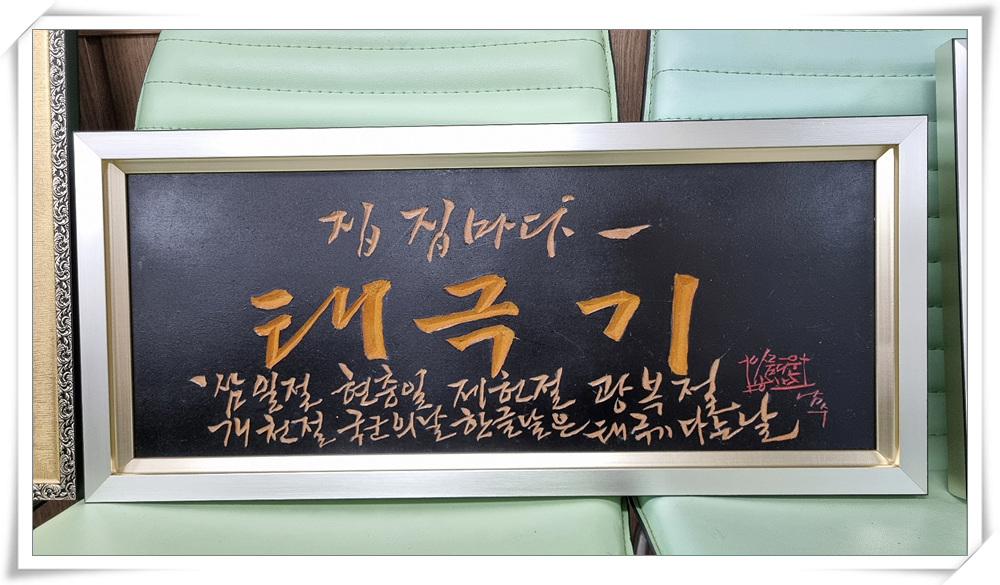 집집마다 -
태극기
삼일절 현충일 제헌절 광복절
개천절 국군의날 한글날은 태극기 다는날